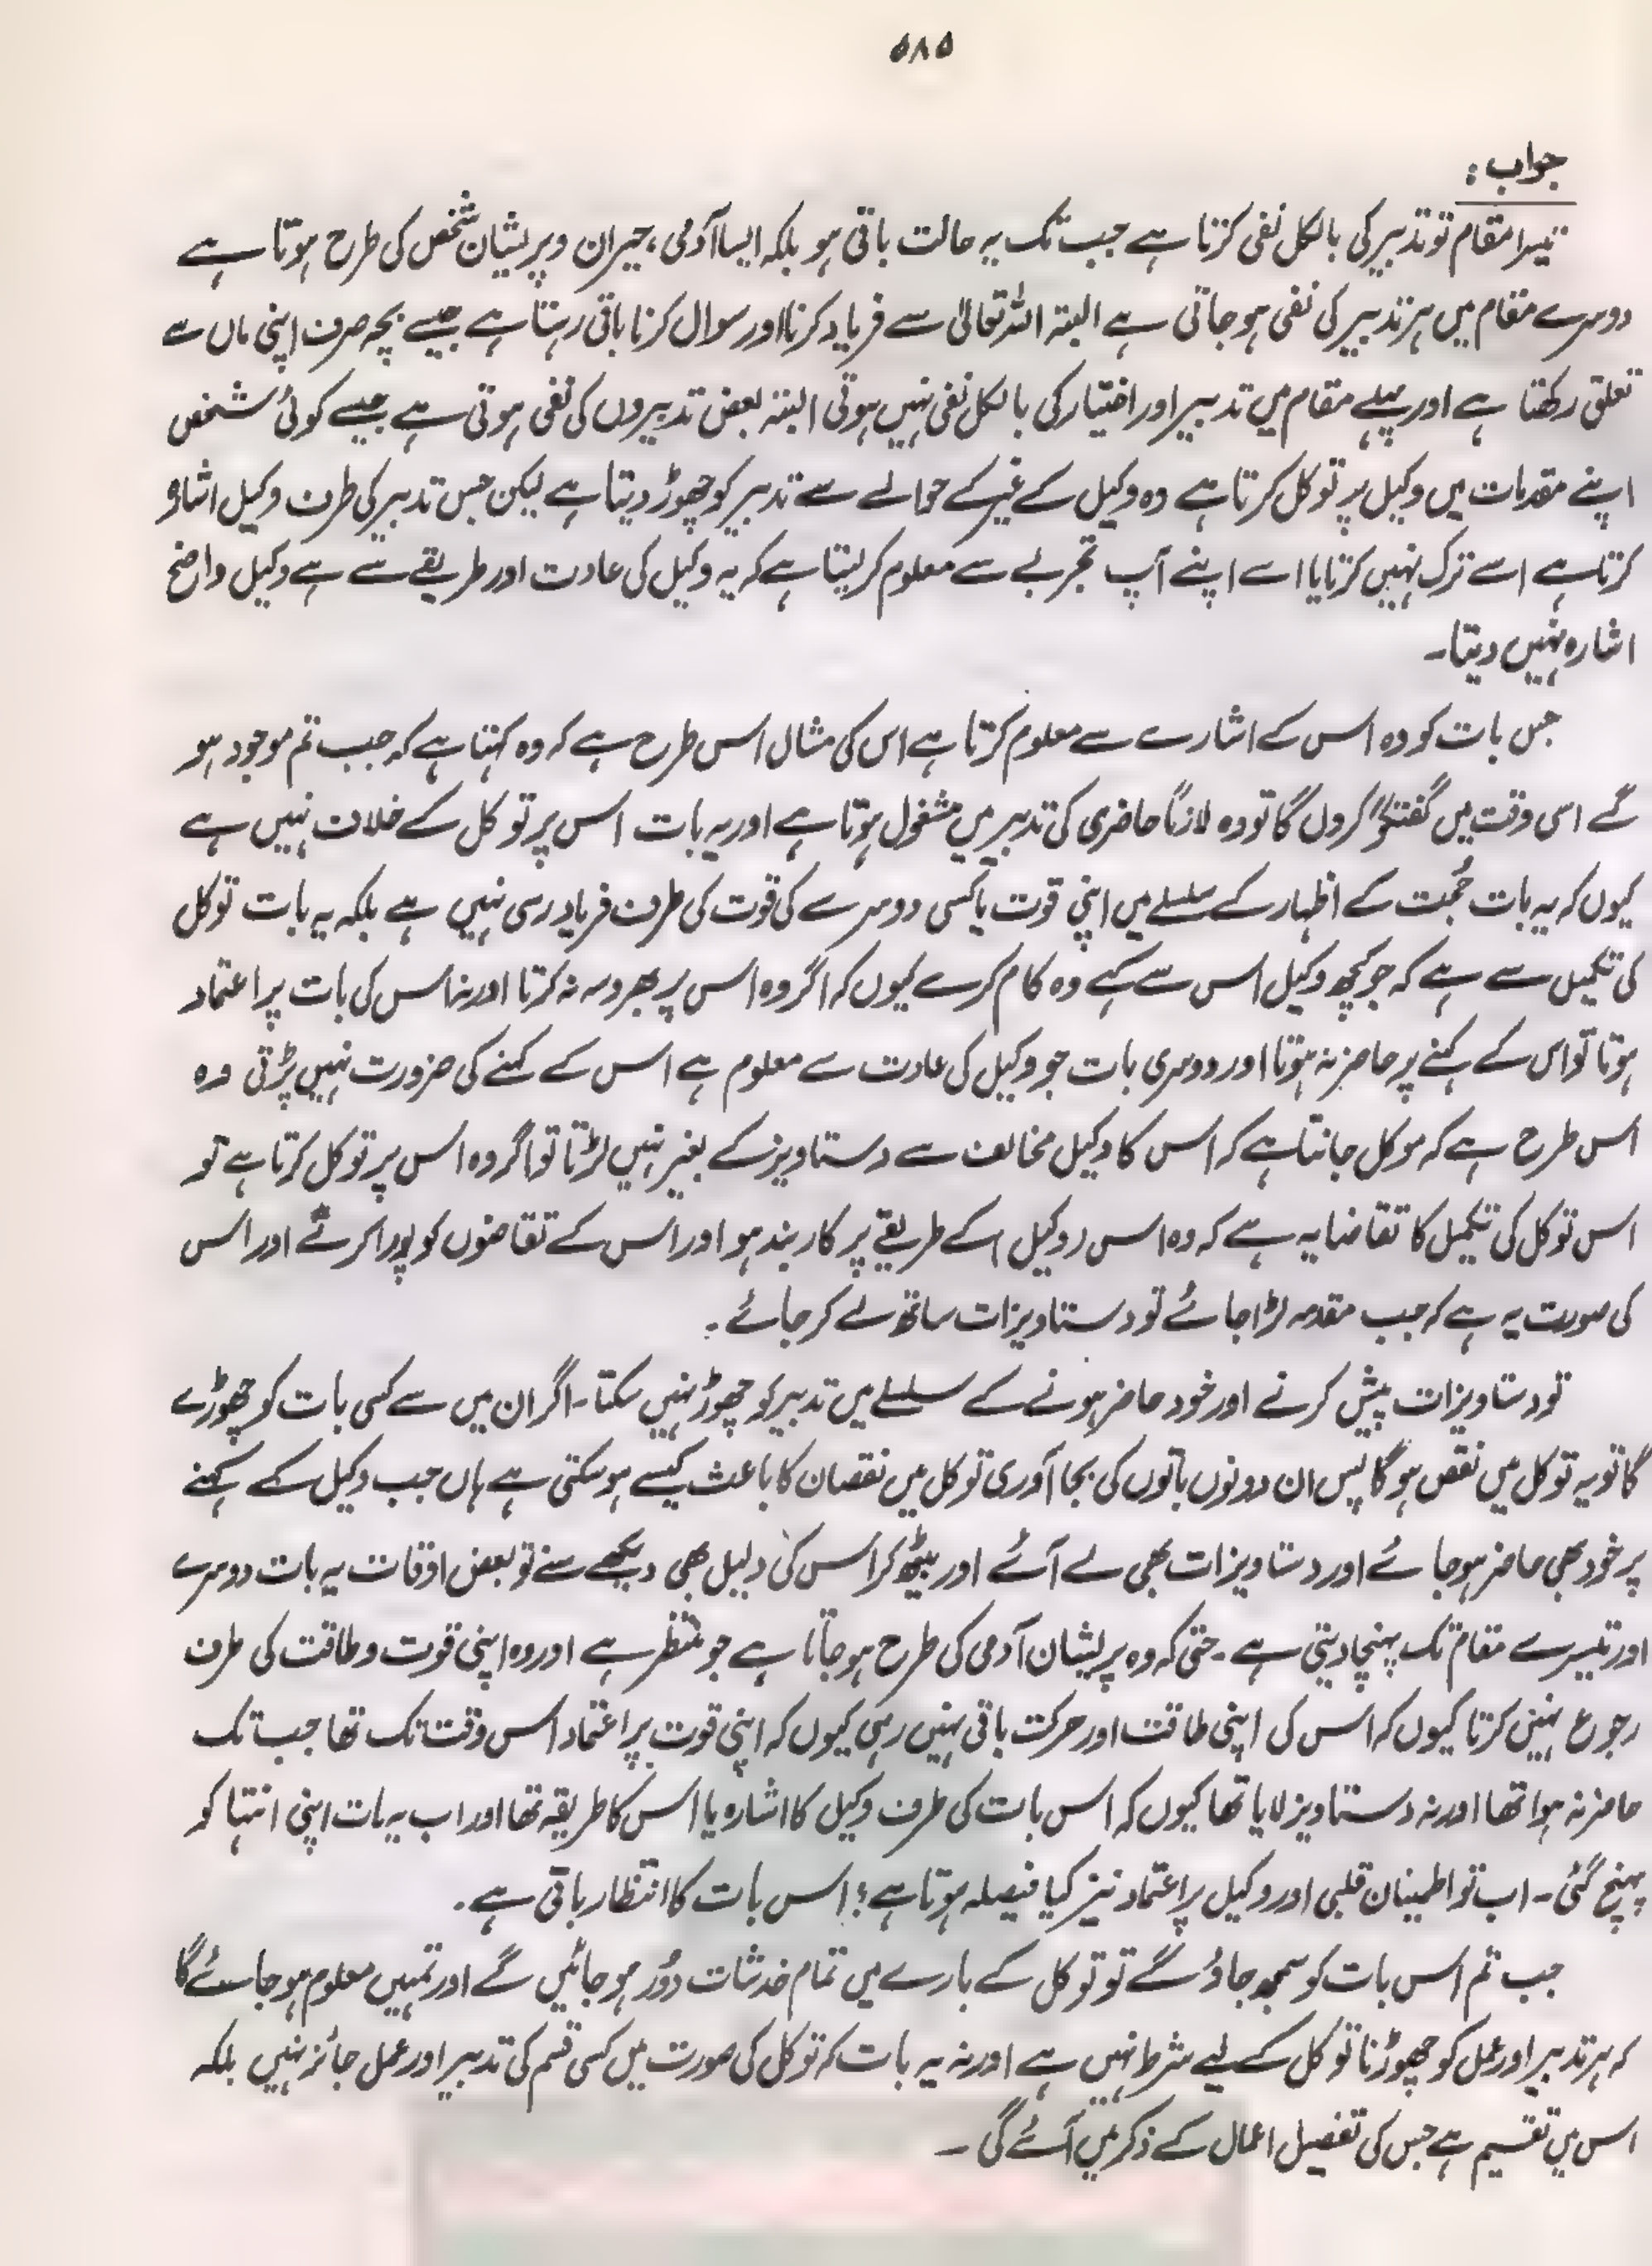 ۵۸۵
جواب :
تیسرا مقام تو تدبیر کی بالکل نفی کرتا ہے جب تک یہ حالت باقی ہو بلکہ ایسا آدمی ، حیران و پریشان شخص کی طرح ہوتا ہے
دوسرے مقام میں ہر تدبیر کی نفی ہو جاتی ہے البتہ اللہ تعالیٰ سے فریاد کرنا اور سوال کرنا باقی رہتا ہے جیسے بچہ صرف اپنی ماں سے
تعلق رکھتا ہے اور پہلے مقام میں تدبیر اور اختیار کی بالکل نفی نہیں ہوتی البتہ بعض تدبیروں کی نفی ہوتی ہے جیسے کوئی شخص
اپنے مقدمات میں وکیل پر توکل کرتا ہے وہ وکیل کے غیر کے حوالے سے تدبیر کو چھوڑ دیتا ہے لیکن جس تدبیر کی طرف وکیل اشارہ
کرتا ہے اسے ترک نہیں کرتا یا اسے اپنے آپ تجربے سے معلوم کر لیتا ہے کہ یہ وکیل کی عادت اور طریقے سے ہے وکیل واضح
اشارہ نہیں دیتا۔
جس بات کو وہ اس کے اشارے سے معلوم کرتا ہے اس کی مثال اس طرح ہے کہ وہ کہتا ہے کہ جب تم موجود ہو
گے اسی وقت میں گفتگو کروں گا تو وہ لازماً حاضری کی تدبیر میں مشغول ہوتا ہے اور یہ بات اس پر توکل کے خلاف نہیں ہے
کیوں کہ یہ بات حُجت کے اظہار کے سلسلے میں اپنی قوت یا کسی دوسرے کی قوت کی طرف فریاد رسی نہیں ہے بلکہ یہ بات توکل
کی تکمیل سے ہے کہ جو کچھ وکیل اس سے کہے وہ کام کرے کیوں کہ اگر وہ اس پر بھروسہ نہ کرتا اور نہ اس کی بات پر اعتماد
ہوتا تو اس کے کہنے پر حاضر نہ ہوتا اور دوسری بات جو وکیل کی عادت سے معلوم ہے اس کے کہنے کی ضرورت نہیں پڑتی وہ
اس طرح ہے کہ موکل جانتا ہے کہ اس کا وکیل مخالف سے دستاویز کے بغیر نہیں لڑتا تو اگر وہ اس پر توکل کرتا ہے تو
اس توکل کی تکمیل کا تقاضا یہ ہے کہ وہ اس (وکیل) کے طریقے پر کاربند ہو اور اس کے تقاضوں کو پورا کرئے اور اس
کی صورت یہ ہے کہ جب مقدمہ لڑا جائے تو دستاویزات ساتھ لے کر جائے۔
تو دستاویزات پیش کرنے اور خود حاضر ہونے کے سلسلے میں تدبیر کو چھوڑ نہیں سکتا۔ اگر ان میں سے کسی بات کو چھوڑے
گا تو یہ توکل میں نقص ہوگا پس ان دونوں باتوں کی بجا آوری توکل میں نقصان کا باعث کیسے ہوسکتی ہے ہاں جب وکیل کے کہنے
پر خود بھی حاضر ہو جائے اور دستاویزات بھی لے آئے اور بیٹھ کر اس کی دلیل بھی دیکھے سنے تو بعض اوقات یہ بات دوسرے
اور تیسرے مقام تک پہنچا دیتی ہے۔ حتی کہ وہ پریشان آدمی کی طرح ہو جاتا ہے جو منتظر ہے اور وہ اپنی قوت و طاقت کی طرف
رجوع نہیں کرتا کیوں کہ اس کی اپنی طاقت اور حرکت باقی نہیں رہی کیوں کہ اپنی قوت پر اعتماد اس وقت تک تھا جب تک
حاضر نہ ہوا تھا اور نہ دستاویز لایا تھا کیوں کہ اس بات کی طرف وکیل کا اشارہ یا اس کا طریقہ تھا اور اب یہ بات اپنی انتہا کو
پہنچ گئی۔ اب تو اطمینان قلبی اور وکیل پر اعتماد نیز کیا فیصلہ ہوتا ہے؛ اس بات کا انتظار باقی ہے۔
جب تم اس بات کو سمجھ جاؤ گے تو توکل کے بارے میں تمام خدشات دُور ہو جائیں گے اور تمہیں معلوم ہو جائے گا
کہ ہر تدبیر اور عمل کو چھوڑنا توکل کے لیے شرط نہیں ہے اور نہ یہ بات کہ توکل کی صورت میں کسی قسم کی تدبیر اور عمل جائز نہیں بلکہ
اس میں تقسیم ہے جس کی تفصیل اعمال کے ذکر میں آئے گی ۔